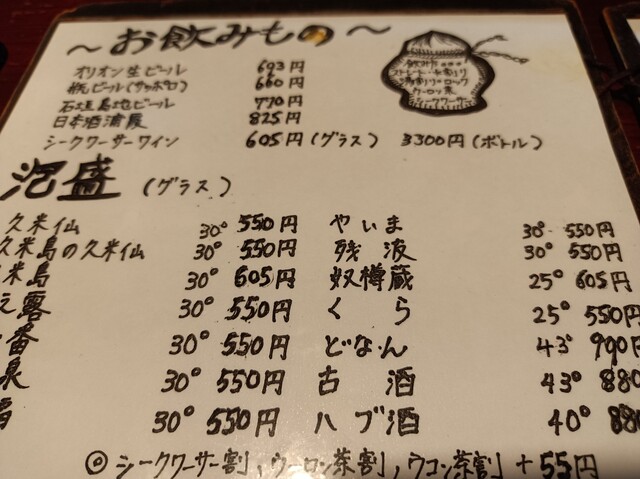 ～お飲みもの～
オリオン生ビール 693円
瓶ビール(サッポロ) 660円
石垣島地ビール 770円
日本酒浦霞 825円
シークワーサーワイン 605円(グラス) 3300円(ボトル)
飲み方
ストレート・水割り
湯割り・ロック
ウーロン茶
泡盛(グラス)
久米仙 30° 550円 やいま 30° 550円
久米島の久米仙 30° 550円 残波 30° 550円
米島 30° 605円 奴樽蔵 25° 605円
之露 30° 550円 くら 25° 550円
番 30° 550円 どなん 43° 990円
泉 30° 550円 古酒 43° 880
30° 550円 ハブ酒 40° 880
◎シークワーサー割,ウーロン茶割,ウコン茶割 +55円